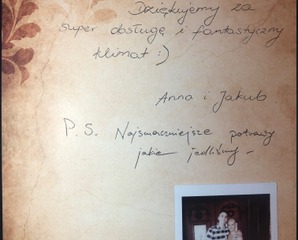 Dziękujemy za
super obsługę i fantastyczny
klimat :)
Anna i Jakub
P.S. Najsmaczniejsze potrawy
jakie jedliśmy –